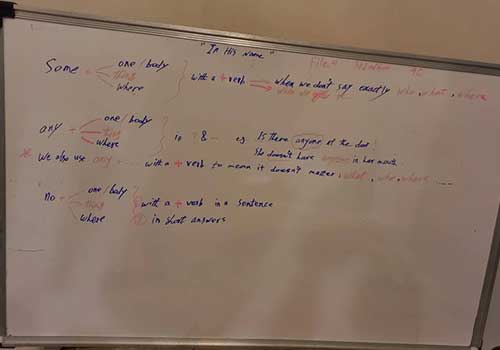 "In His Name"
File 4
Some + one / body
thing
where
with a + verb → when we don't say exactly who, what, where
any + one / body
thing
where
in ? & - e.g. Is there anyone at the door?
She doesn't have anyone in her
* We also use any ..... with a + verb to mean it doesn't matter what, who, where ....
no + one / body
thing
where
① with a + verb in a sentence
② in short answers